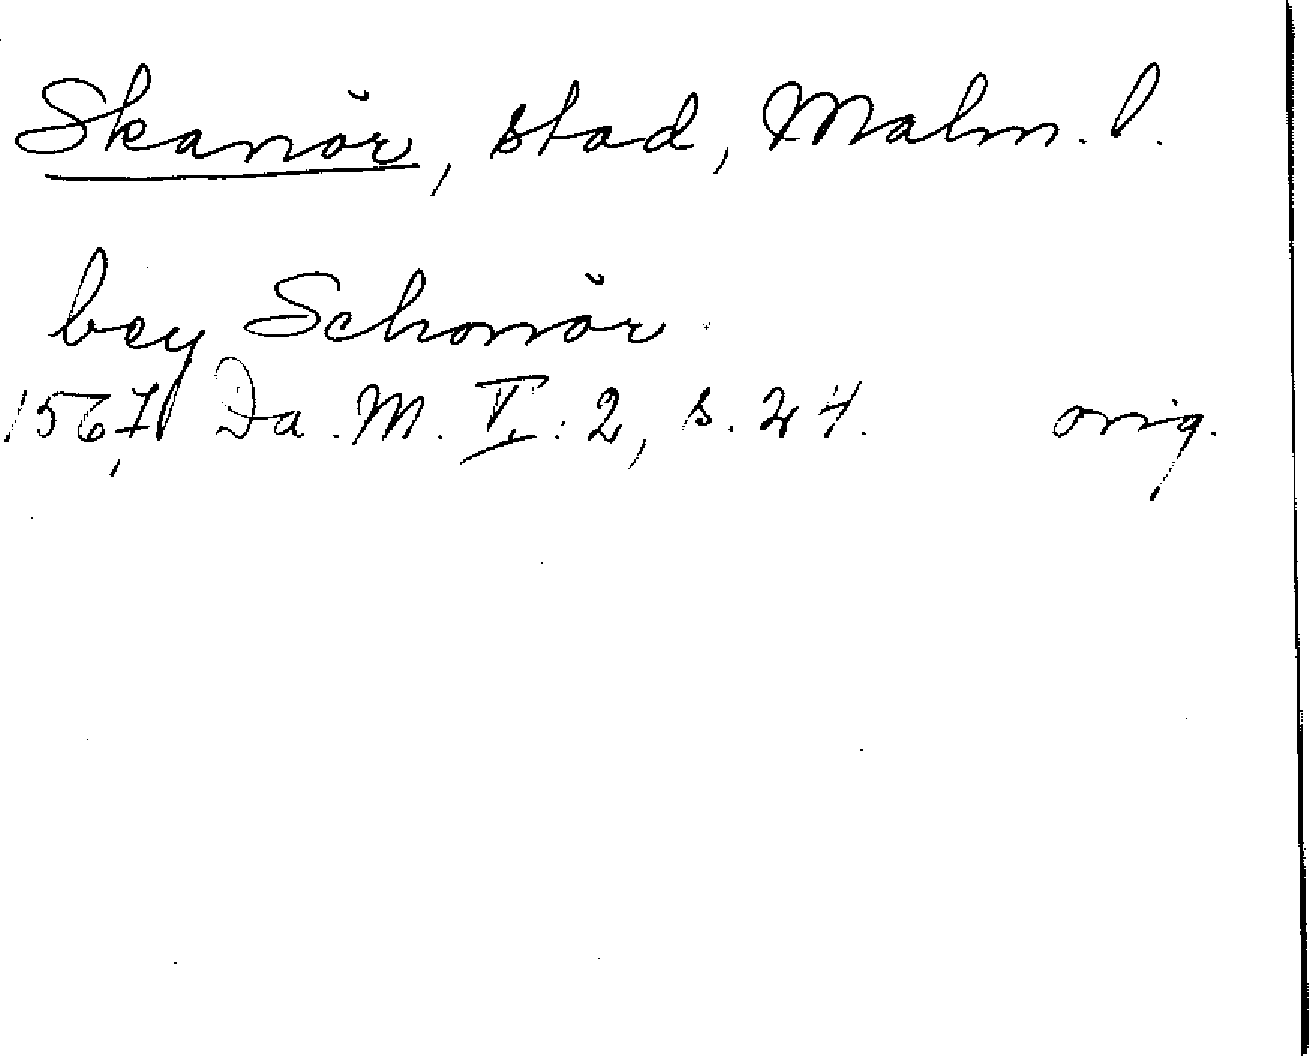 Skanör, stad, Malm. l.
bey Schonör.
1567, Da. M. V: 2, s. 24. orig.